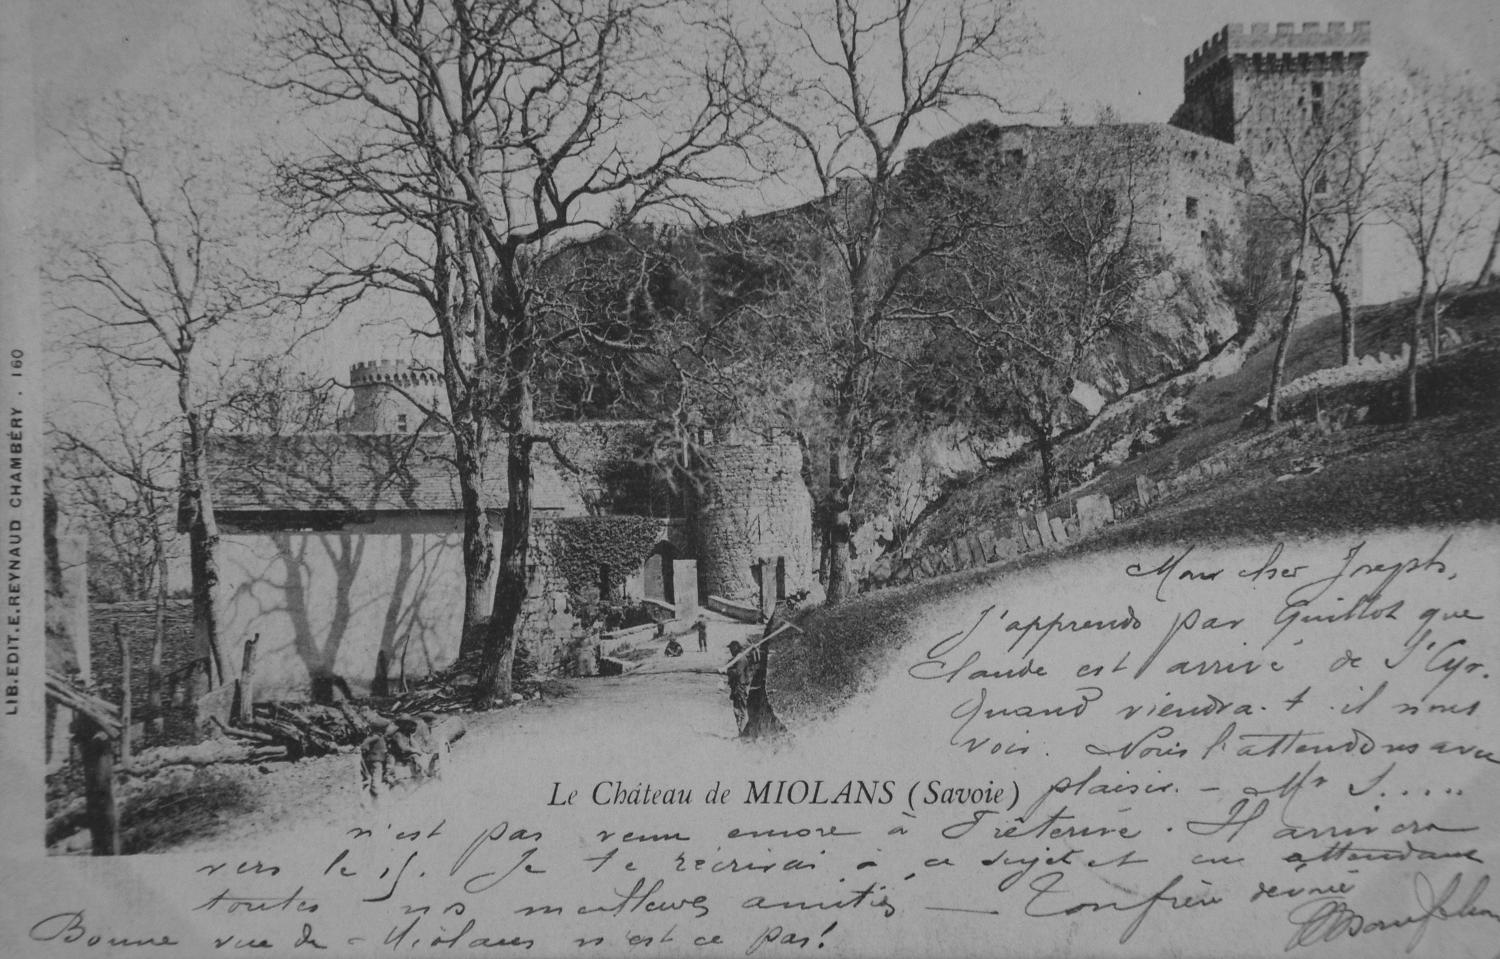 LIB. EDIT. E. REYNAUD CHAMBÉRY . 160
Mon cher Joseph,
J'apprends par Guillot que
Claude est arrivé de St Cyr.
Quand viendra-t-il nous
voir. Nous l'attendons avec
Le Château de MIOLANS (Savoie)
plaisir. - Mr S.....
n'est pas venu encore à Fréterive. Il arrivera
vers le 15. Je te récrirai à ce sujet et en attendant
toutes nos meilleures amitiés — Ton frère dévoué
Bonne vue de Miolans n'est ce pas!